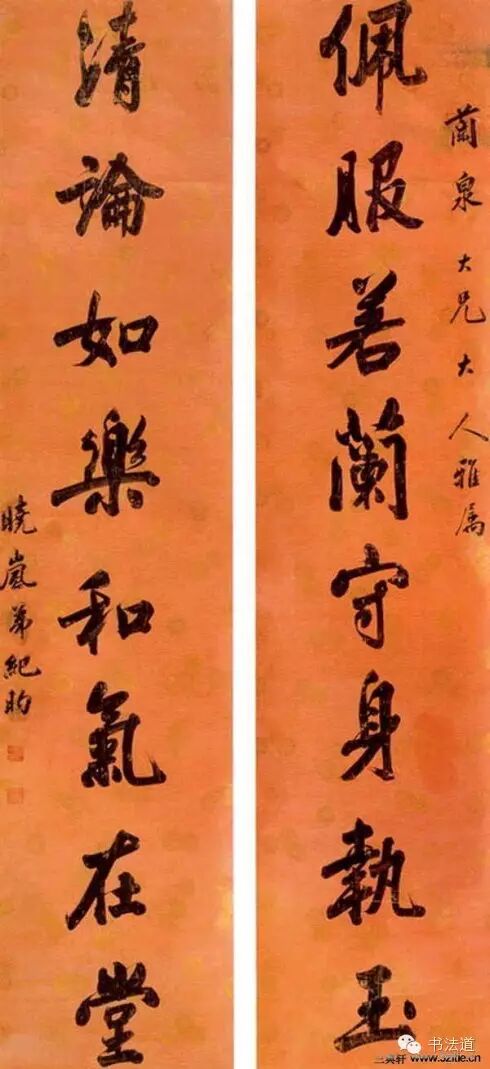 蘭泉大兄大人雅属
佩服若蘭守身執玉
清論如樂和氣在堂
曉嵐弟紀昀
书法道
www.52itle.cn